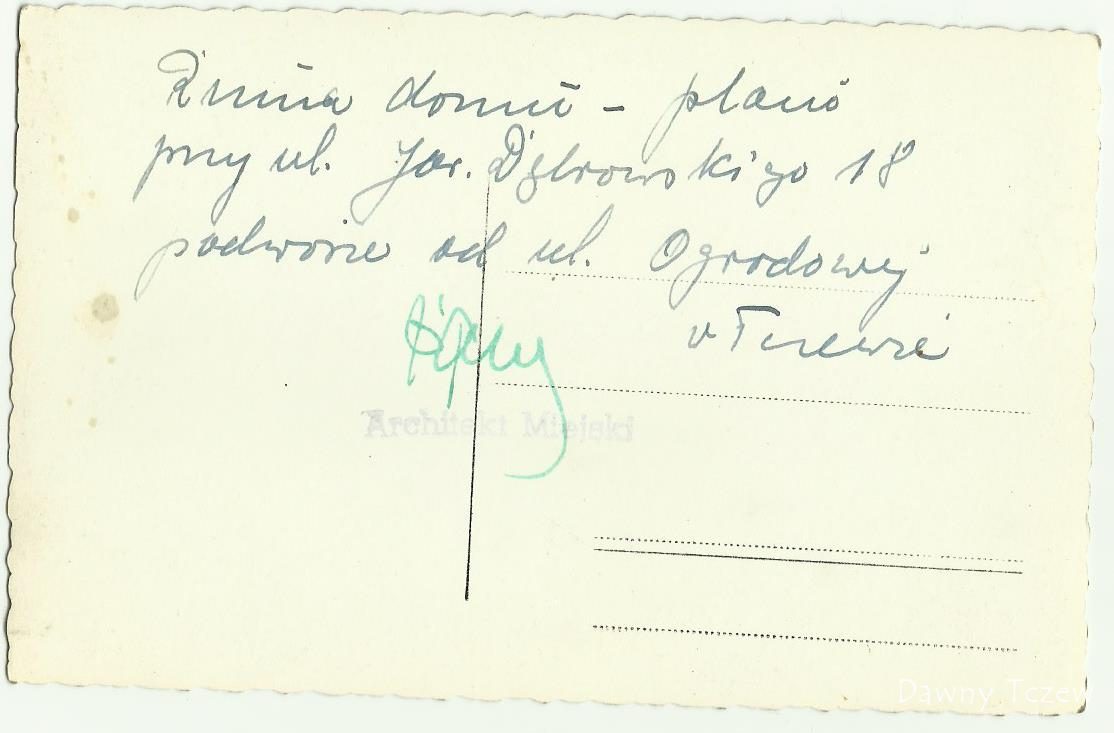 Ruina domu - plac
przy ul. Jar. Dąbrowskiego 18
podwórze od ul. Ogrodowej
w Tczewie
Architekt Miejski
Dawny Tczew